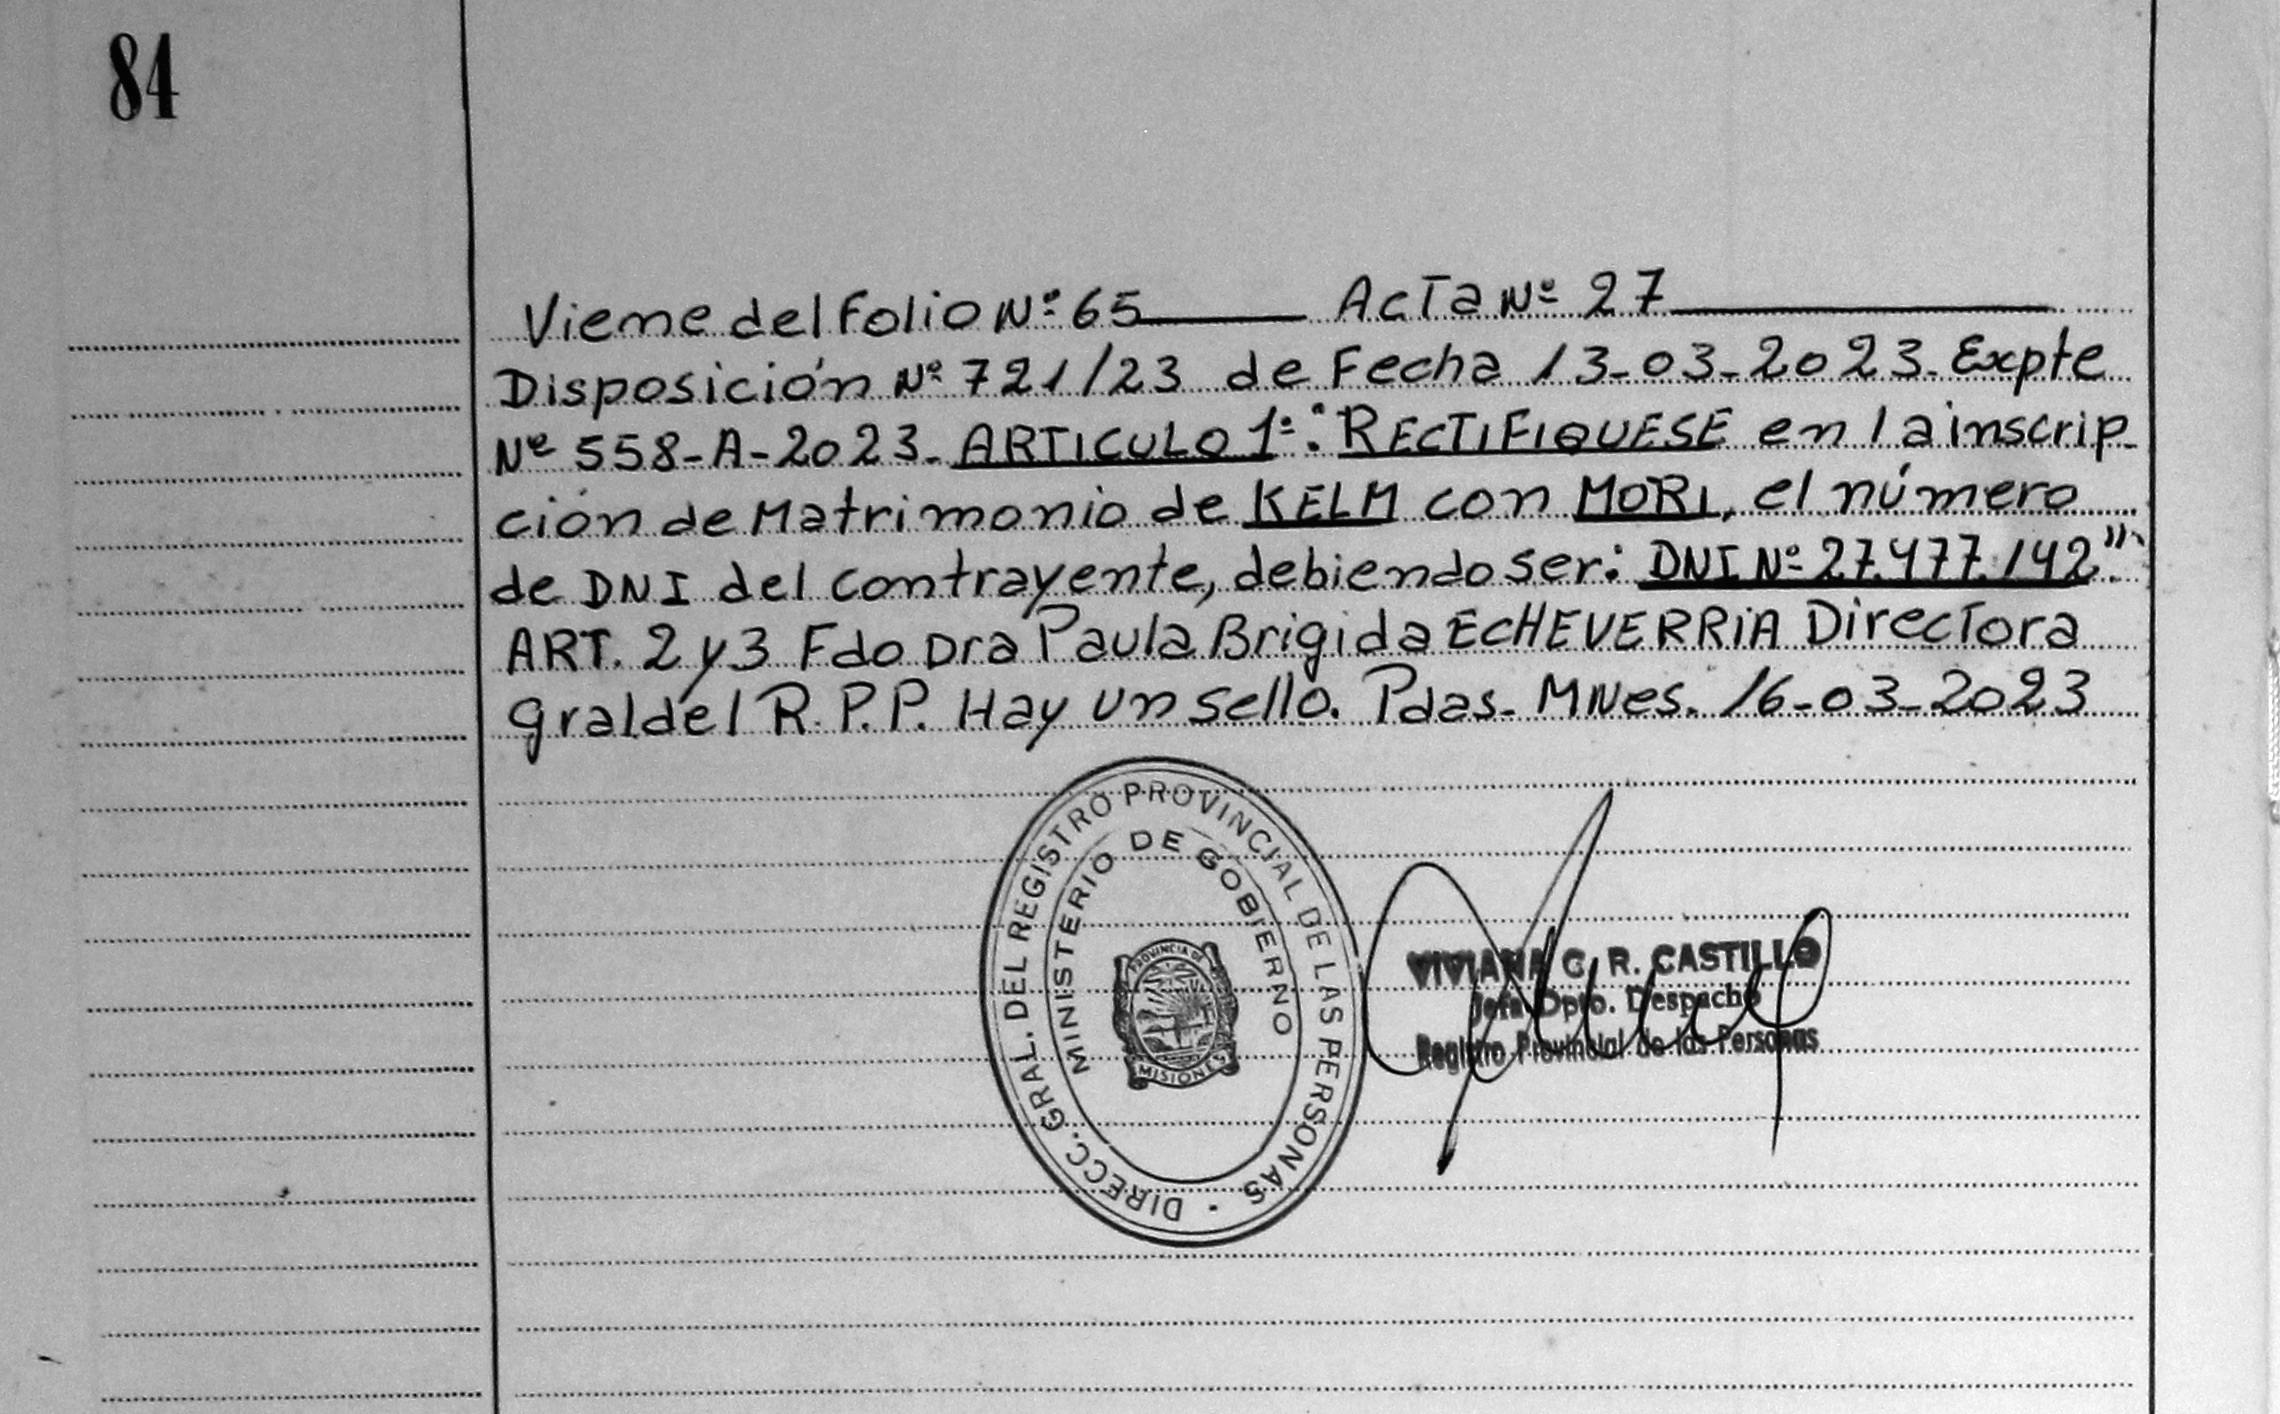 84
Viene del Folio Nº 65 Acta Nº 27
Disposición Nº 721/23 de Fecha 13-03-2023. Expte
Nº 558-A-2023. ARTICULO 1º: "RECTIFIQUESE en la inscrip-
ción de Matrimonio de KELM con MORI, el número
de DNI del contrayente, debiendo ser: DNI Nº 27.477.142".
ART. 2 y 3 Fdo Dra Paula Brigida ECHEVERRiA Directora
Gral del R.P.P. Hay un sello. Pdas- MNes. 16-03-2023
DIRECC. GRAL. DEL REGISTRO PROVINCIAL DE LAS PERSONAS
MINISTERIO DE GOBIERNO
PROVINCIA DE
MISIONES
VIVIANA C. R. CASTILLO
Jefa Dpto. Despacho
Registro Provincial de las Personas